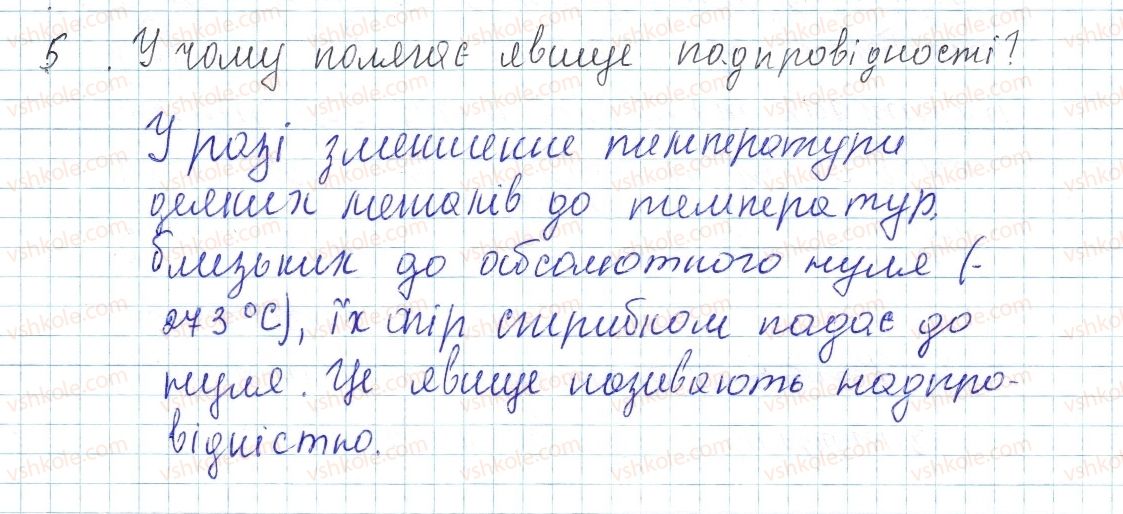 5. У чому полягає явище надпровідності?
У разі зменшення температури
деяких металів до температур,
близьких до абсолютного нуля (-
273 °С), їх опір стрибком падає до
нуля. Це явище називають надпро-
відністю.